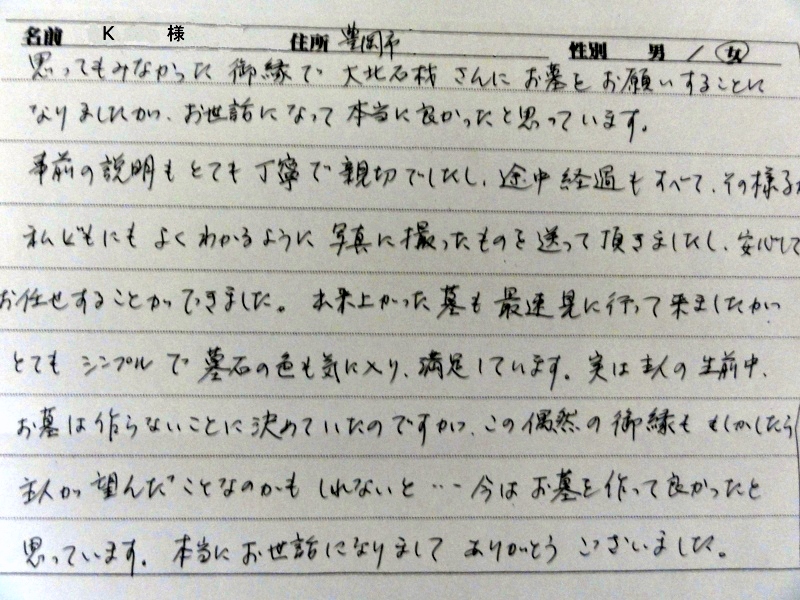 名前 K 様 住所 豊岡市 性別 男 / 女
思ってもみなかった 御縁で 大北石材 さんに お墓を お願いすることに
なりましたが、お世話になって 本当に良かったと思っています。
事前の説明も とても 丁寧で 親切でしたし、途中経過も すべて、その様子が
私どもにも よくわかるように 写真に撮ったものを 送って頂きましたし、安心して
お任せすることができました。出来上がった 墓も 最速見に行って来ましたが
とても シンプルで 墓石の色も気に入り、満足しています。実は主人の生前中、
お墓は作らないことに決めていたのですが、この偶然の御縁も もしかしたら
主人が望んだことなのかも しれないと … 今は お墓を作って良かったと
思っています。本当に お世話になりまして ありがとう ございました。